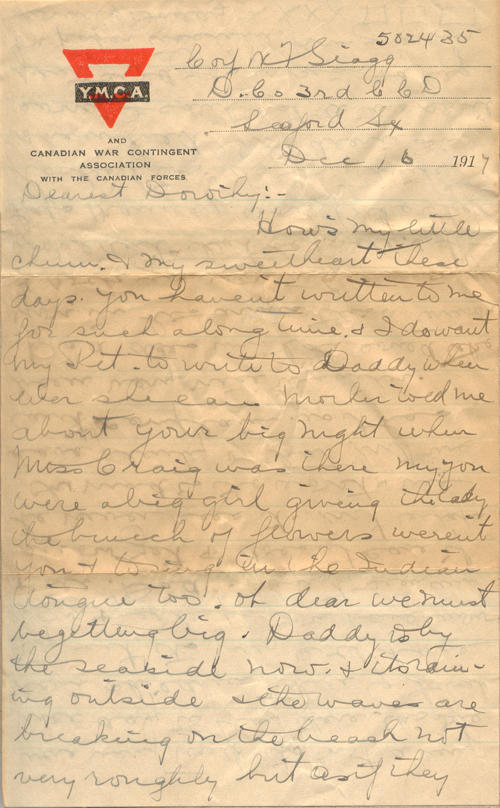 502435
Y.M.C.A
AND
CANADIAN WAR CONTINGENT
ASSOCIATION
WITH THE CANADIAN FORCES
D. Co 3rd C C D
Seaford Sx
Dec, 6 1917
Dearest Dorothy:-
How's my little
chum. & my sweetheart these
days. you haven't written to me
for such a long time. & I do want
my Pet. to write to Daddy when
ever she can Mother told me
about your big night when
Miss Craig was there my you
were a big girl giving the lady
the bunch of flowers weren't
you & to sing in the Indian
tongue too. oh dear we must
be getting big. Daddy is by
the seaside now. & its rain-
ing outside & the waves are
breaking on the beach not
very roughly but as if they